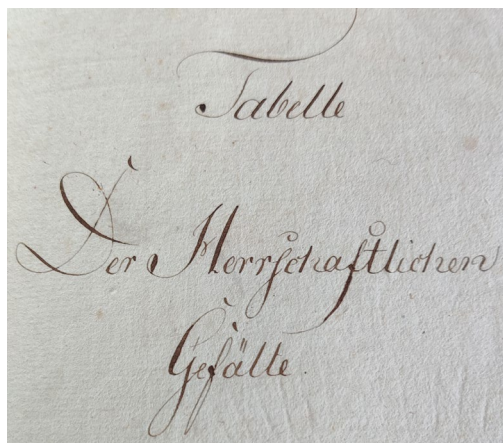 Tabelle
Der Herrschaftlichen
Gefälle.